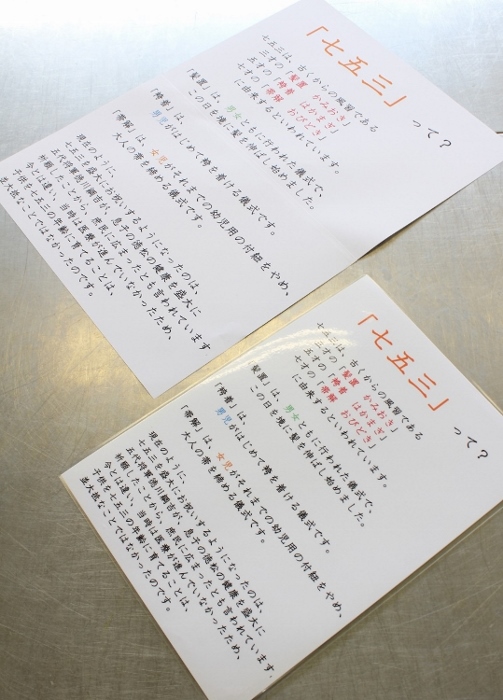 「七五三」って？
七五三は、古くからの風習である
三才の「髪置　かみおき」
五才の「袴着　はかまぎ」
七才の「帯解　おびとき」
に由来するといわれています。
「髪置」は、男女ともに行われた儀式で、
この日を境に髪を伸ばし始めました。
「袴着」は、
男児がはじめて袴を着ける儀式です。
「帯解」は、女児がそれまでの幼児用の付紐をやめ、
大人の帯を締める儀式です。
現在のように、
七五三を盛大にお祝いするようになったのは、
五代将軍徳川綱吉が、息子の徳松の健康を盛大に
祈願したことから、庶民に広まったとも言われています
今とは違い、当時は医療が進んでいなかったため、
子供を七五三の年齢に育てることは、
並大抵なことではなかったのです。
「七五三」って？
七五三は、古くからの風習である
三才の「髪置　かみおき」
五才の「袴着　はかまぎ」
七才の「帯解　おびとき」
に由来するといわれています。
「髪置」は、男女ともに行われた儀式で、
この日を境に髪を伸ばし始めました。
「袴着」は、
男児がはじめて袴を着ける儀式です。
「帯解」は、女児がそれまでの幼児用の付紐をやめ、
大人の帯を締める儀式です。
現在のように、
七五三を盛大にお祝いするようになったのは、
五代将軍徳川綱吉が、息子の徳松の健康を盛大に
祈願したことから、庶民に広まったとも言われています。
今とは違い、当時は医療が進んでいなかったため、
子供を七五三の年齢に育てることは、
並大抵なことではなかったのです。